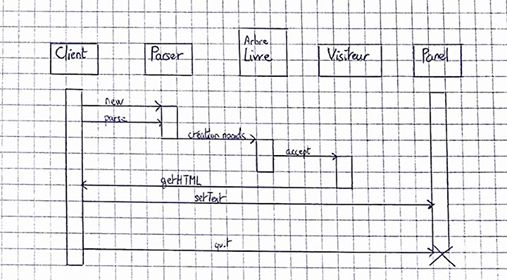 Client
Parser
Arbre
Livre
Visiteur
Panel
new
parse
création noeuds
accept
getHTML
setText
quit